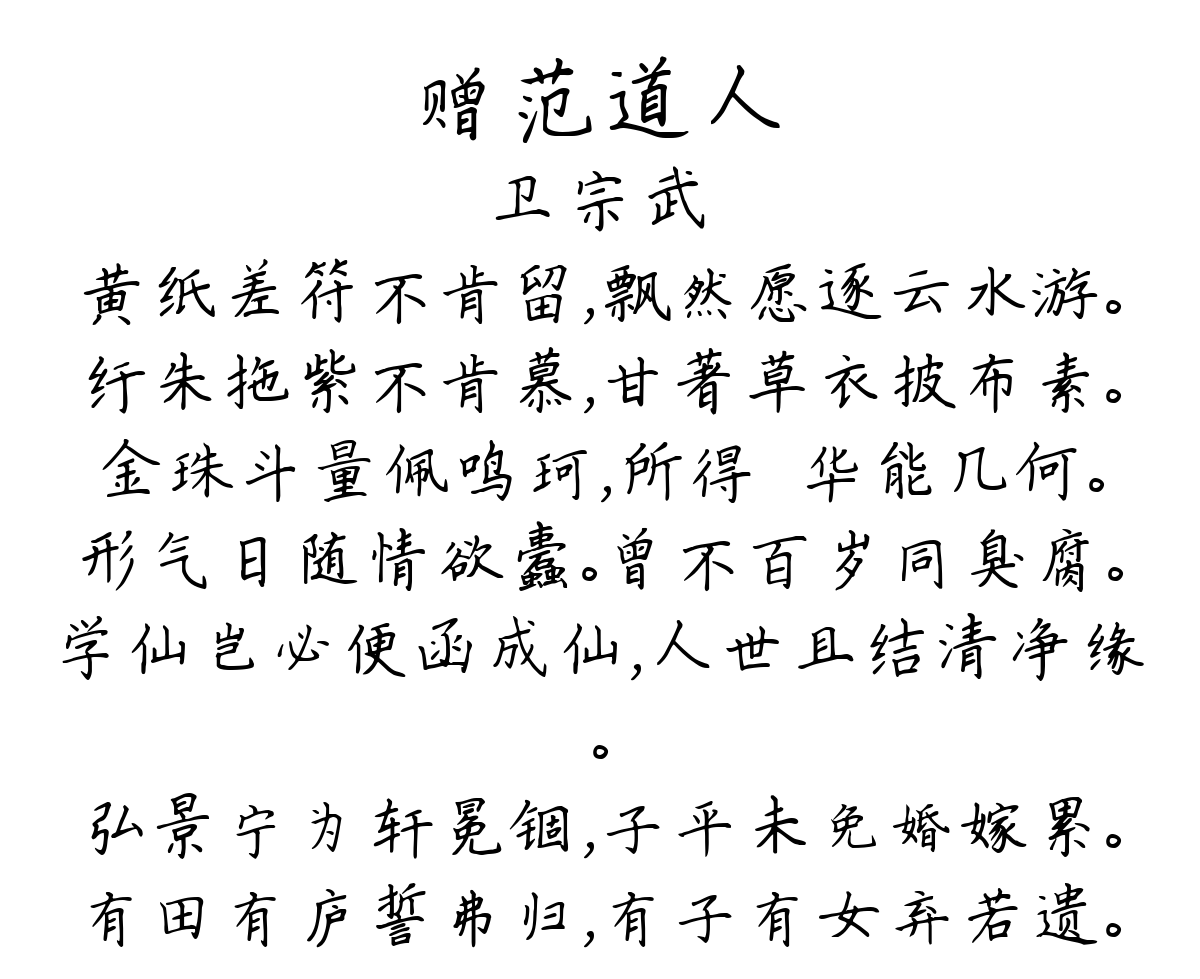 赠范道人
卫宗武
黄纸差符不肯留,飘然愿逐云水游。
纡朱拖紫不肯慕,甘著草衣披布素。
金珠斗量佩鸣珂,所得 华能几何。
形气日随情欲蠹。曾不百岁同臭腐。
学仙岂必便函成仙,人世且结清净缘
。
弘景宁为轩冕锢,子平未免婚嫁累。
有田有庐誓弗归,有子有女弃若遗。